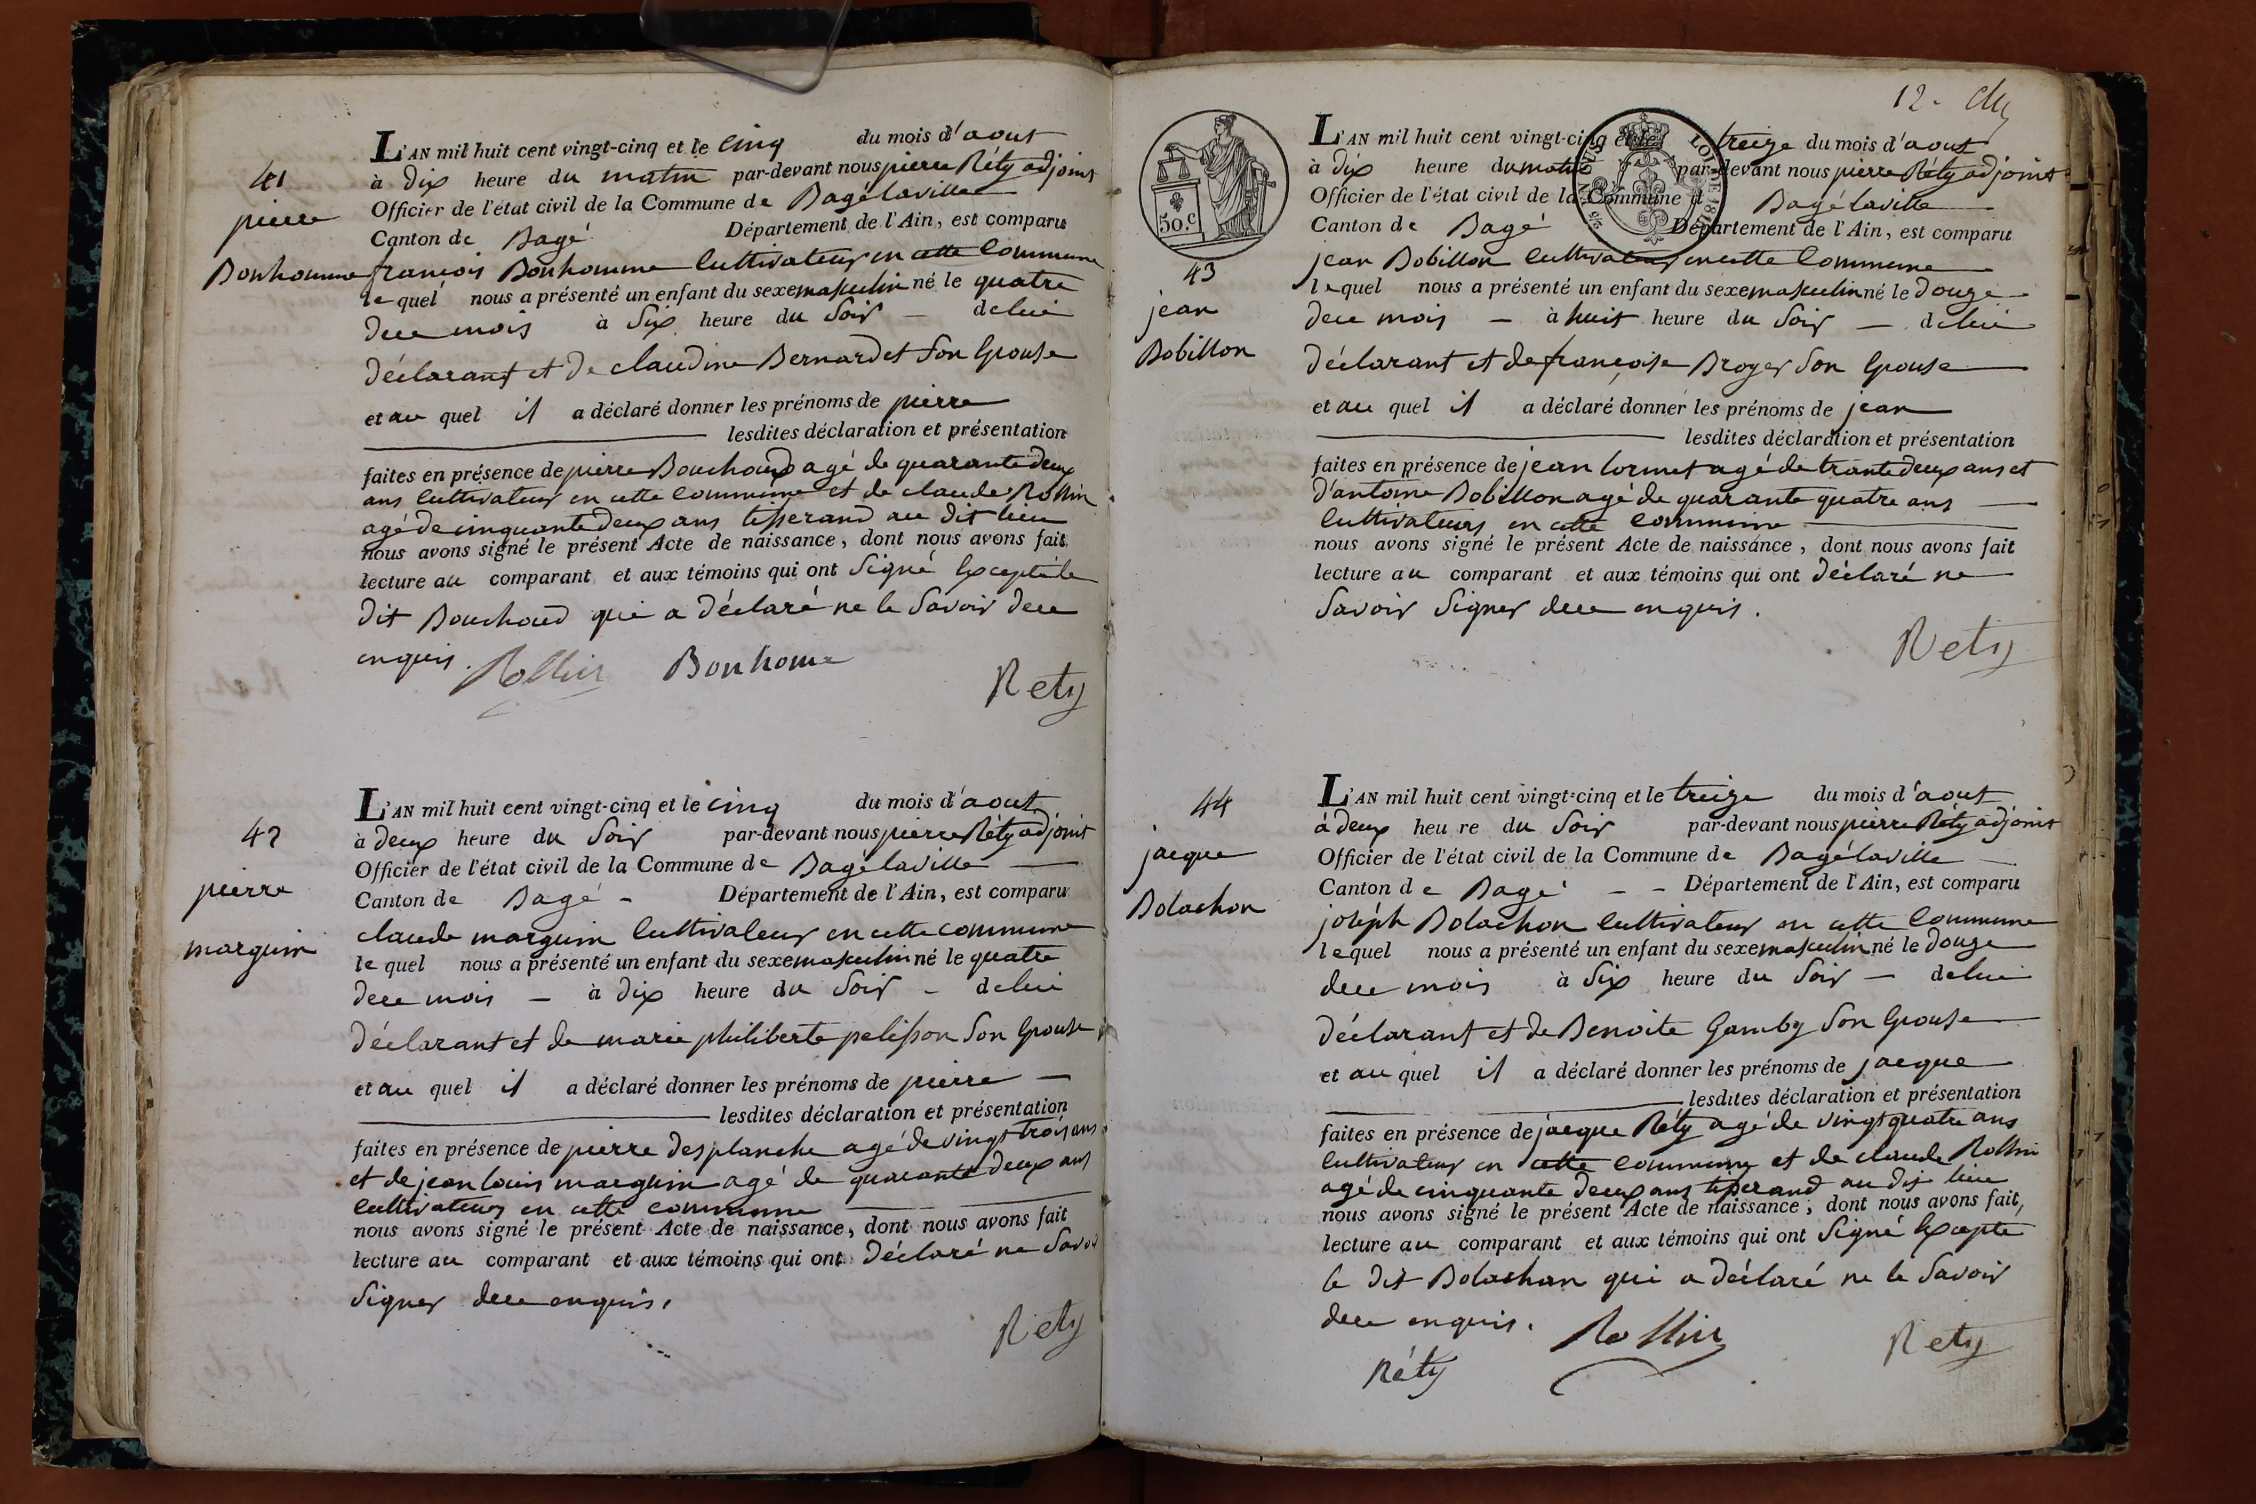 41
pierre
Bonhomme
L'AN mil huit cent vingt-cinq et le cinq du mois d'aout
à dix heure du matin par-devant nous pierre Réty adjoint
Officier de l'état civil de la Commune de Bagélaville
Canton de Bagé Département de l'Ain, est comparu
francois Bonhomme Cultivateur en cette Commune
le quel nous a présenté un enfant du sexe masculin né le quatre
de ce mois à Six heure du Soir — de lui
déclarant et de claudine Bernardet Son Epouse
et au quel il a déclaré donner les prénoms de pierre
lesdites déclaration et présentation
faites en présence de pierre Bouchoud agé de quarante deux
ans Cultivateur en cette commune et de claude Rollin
agé de cinquante deux ans tisserand au dit lieu
nous avons signé le présent Acte de naissance, dont nous avons fait
lecture au comparant et aux témoins qui ont Signé Excepté le
dit Bouchoud qui a déclaré ne le Savoir de ce
enquis.
Rollin Bonhome
Rety
42
pierre
marguin
L'AN mil huit cent vingt-cinq et le cinq du mois d'aout
à deux heure du Soir par-devant nous pierre Réty adjoint
Officier de l'état civil de la Commune de Bagélaville
Canton de Bagé - Département de l'Ain, est comparu
claude marguin Cultivateur en cette commune
le quel nous a présenté un enfant du sexe masculin né le quatre
de ce mois — à dix heure du Soir - de lui
déclarant et de marie philiberte pelisson Son Epouse
et au quel il a déclaré donner les prénoms de pierre —
lesdites déclaration et présentation
faites en présence de pierre desplanche agé de vingt trois ans
et de jean louis marguin agé de quarante deux ans
Cultivateurs en cette commune
nous avons signé le présent Acte de naissance, dont nous avons fait
lecture au comparant et aux témoins qui ont déclaré ne Savoir
Signer de ce enquis,
Rety
12.
50.C
LOI DE 181
43
jean
Bobillon
L'AN mil huit cent vingt-cinq et le treize du mois d'aout
à dix heure du matin par-devant nous pierre Réty adjoint
Officier de l'état civil de la Commune d Bagélaville
Canton de Bagé Département de l'Ain, est comparu
jean Bobillon Cultivateur en cette Commune
lequel nous a présenté un enfant du sexe masculin né le douze
de ce mois — à huit heure du Soir — de lui
déclarant et de françoise Broyer Son Epouse
et au quel il a déclaré donner les prénoms de jean
lesdites déclaration et présentation
faites en présence de jean Cormet agé de trante deux ans et
d'antoine Bobillon agé de quarante quatre ans
Cultivateurs en cette commune
nous avons signé le présent Acte de naissance, dont nous avons fait
lecture au comparant et aux témoins qui ont déclaré ne
Savoir Signer de ce enquis.
Rety
44
jacque
Bolachon
L'AN mil huit cent vingt-cinq et le treize du mois d'aout
à deux heure du Soir par-devant nous pierre Réty adjoint
Officier de l'état civil de la Commune de Bagélaville
Canton de Bagé - - Département de l'Ain, est comparu
joséph Bolachon Cultivateur en cette Commune
lequel nous a présenté un enfant du sexe masculin né le douze
de ce mois à Six heure du Soir — de lui
déclarant et de Benoite Gamby Son Epouse
et au quel il a déclaré donner les prénoms de jacque
lesdites déclaration et présentation
faites en présence de jacque Réty agé de vingt quatre ans
Cultivateur en cette commune et de claude Rollin
agé de cinquante deux ans tiserand au dit lieu
nous avons signé le présent Acte de naissance, dont nous avons fait,
lecture au comparant et aux témoins qui ont Signé Excepte
le dit Bolachon qui a déclaré ne le Savoir
de ce enquis.
Rollin
Rety
Réty